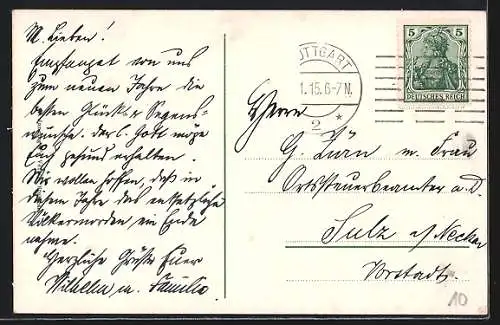 M. Lieben!
Empfanget von uns
zum neuen Jahre die
besten Glück & Segens-
wünsche. der l. Gott möge
Euch gesund erhalten.
Wir wollen hoffen, daß in
diesem Jahre das entsetzliche
Völkermorden ein Ende
nehme.
Herzliche Grüße Euer
Wilhelm u. Familie.
STUTTGART
1.15.6-7N.
2 *
5 5
DEUTSCHES REICH
Herrn
G. Zürn u. Frau
Ortssteuerbeamter a. D.
Sulz a/Neckar
Vorstadt.
10